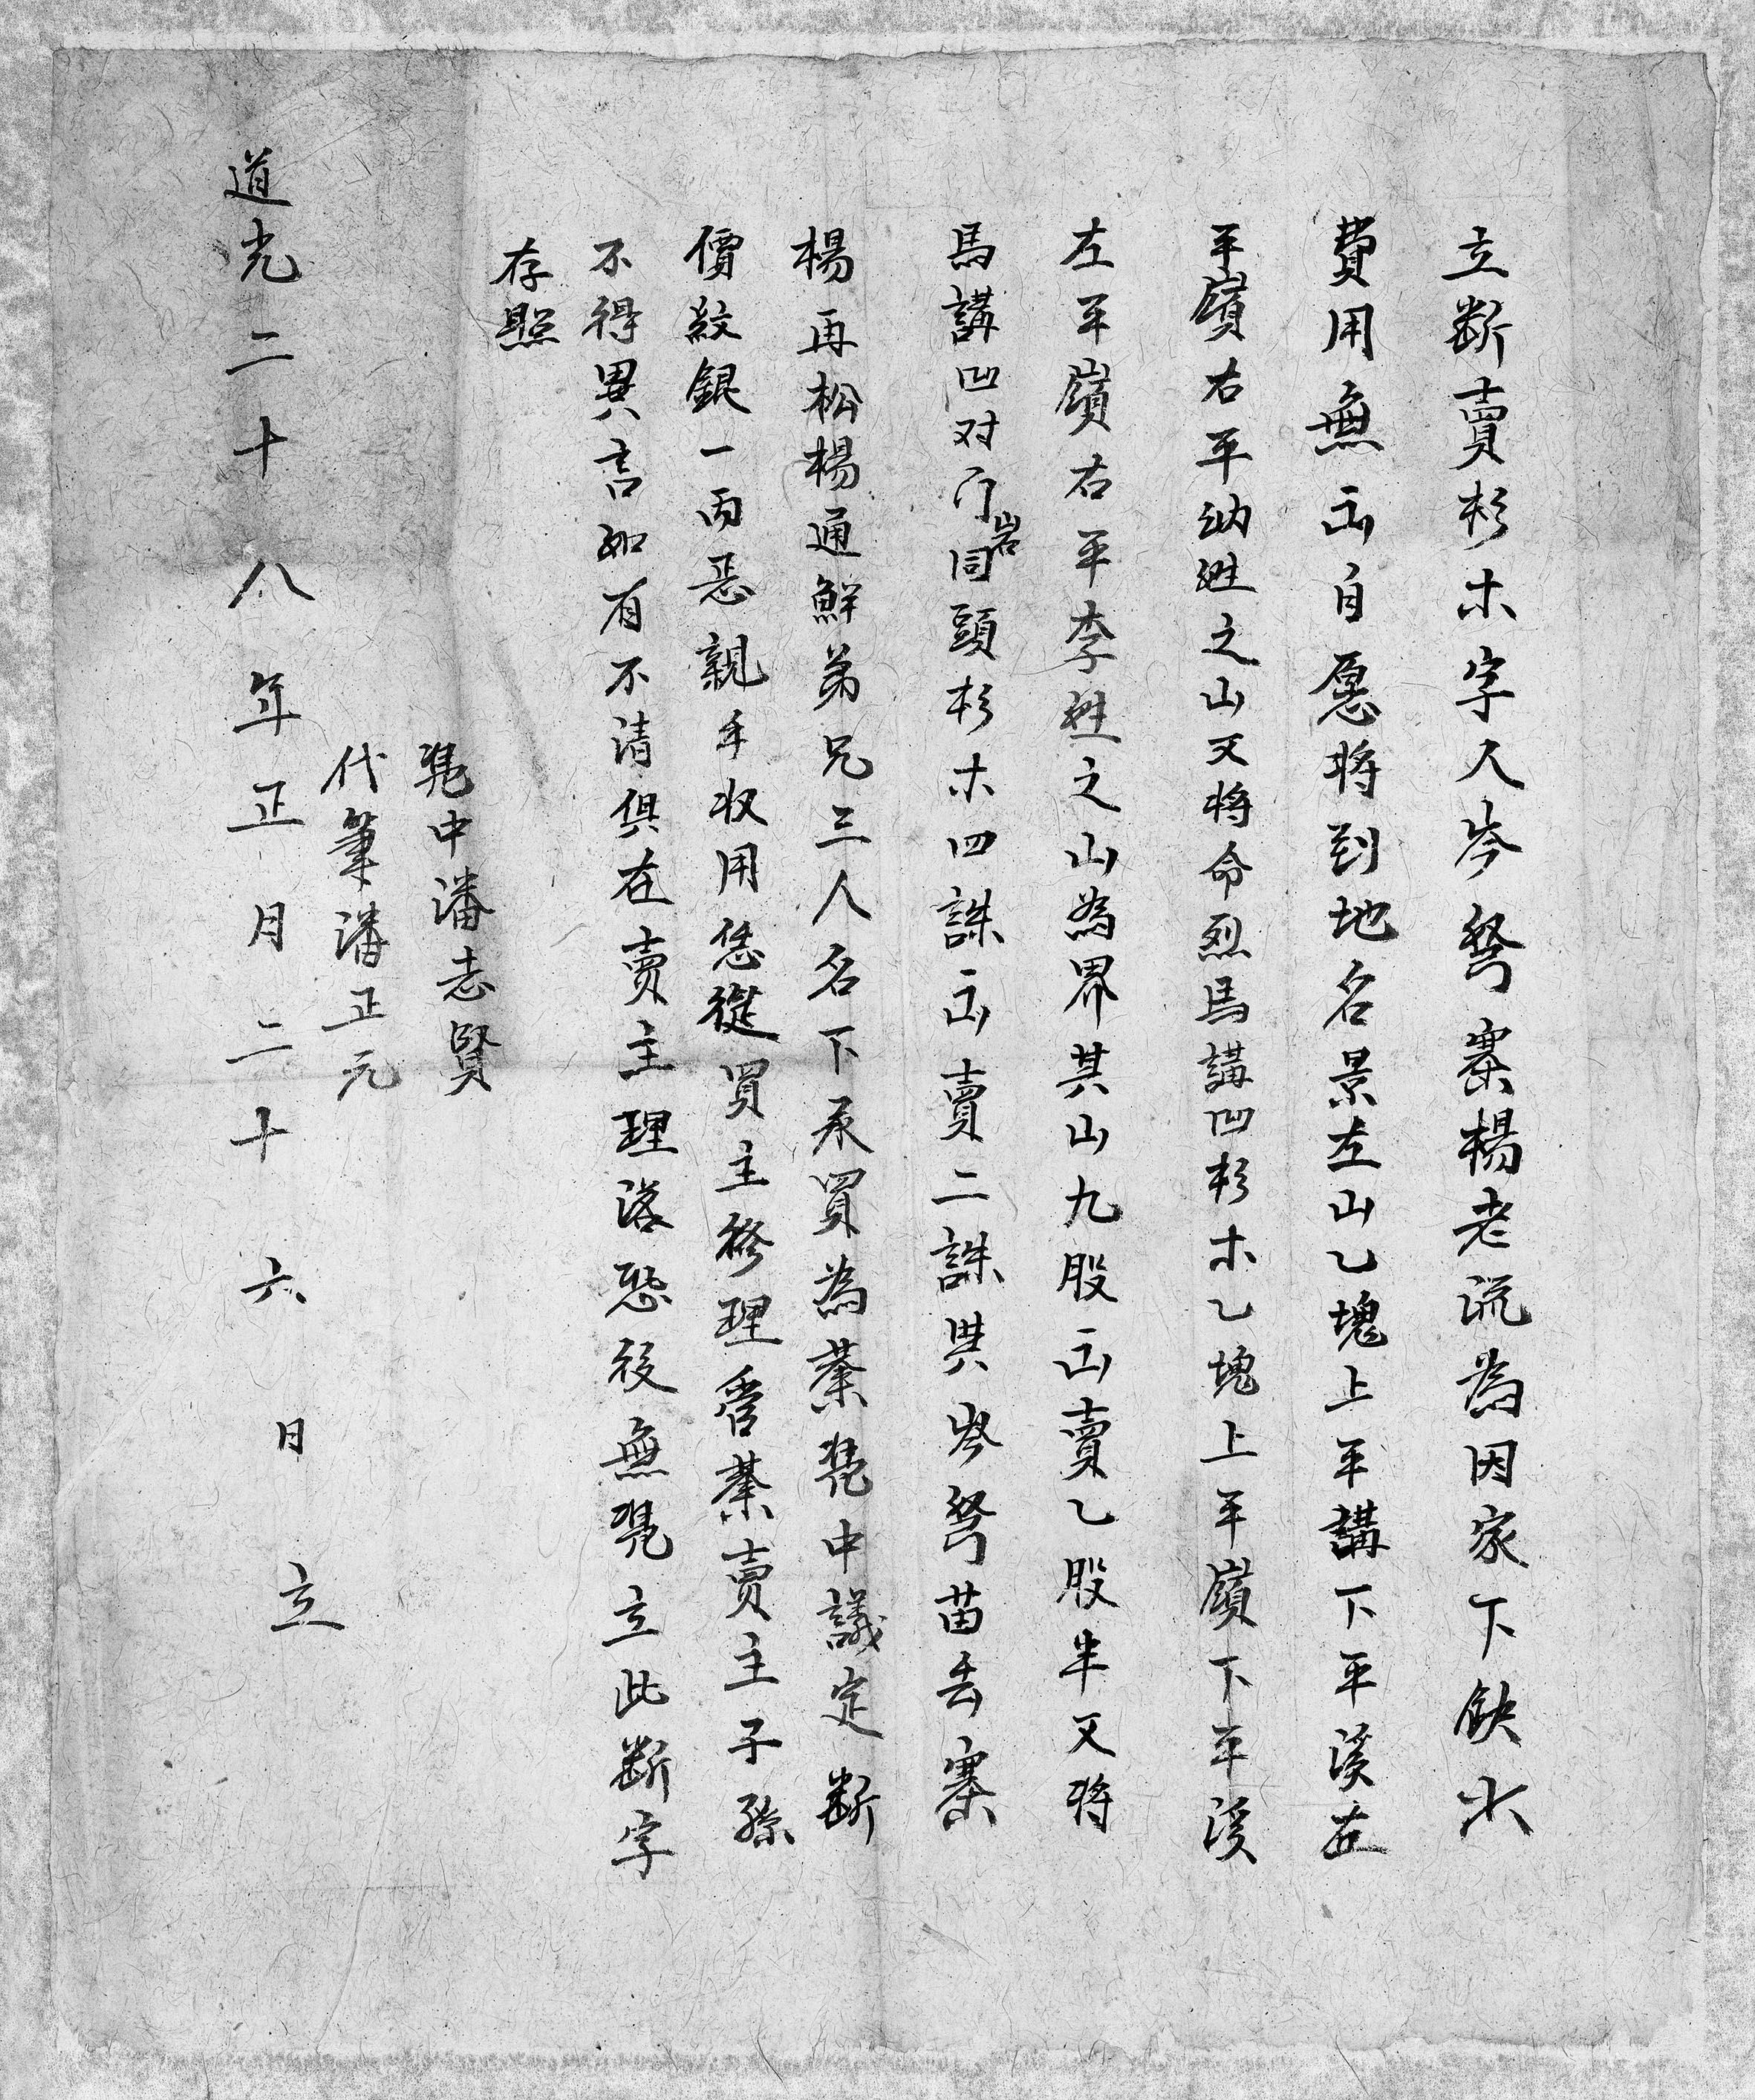 立断賣杉木字人岑弩寨楊老流為因家下缺少
費用無出自愿将到地名景左山乙塊上平講下平溪左
平嶺右平納姓之山又将命烈馬講凹杉木乙塊上平嶺下平溪
左平嶺右平李姓之山為界其山九股出賣乙股半又将
馬講凹对门岩同頭杉木四誅出賣二誅與岑弩苗丢寨
楊再松楊通鮮弟兄三人名下承買為業凴中議定断
價紋銀一両悉親手收用恁從買主修理管業賣主子孫
不得異言如有不清俱在賣主理落恐後無凴立此断字
存照
凴中潘志賢
代筆潘正元
道光二十八年正月二十六日立